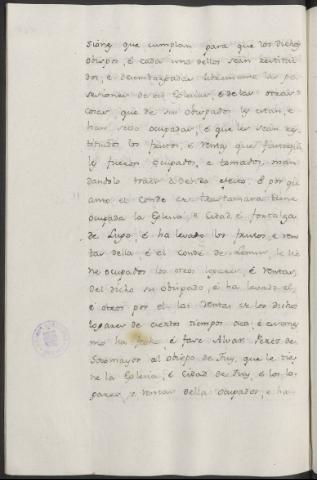 sione que cumplan para que los dichos
obispos, é cada uno dellos sean restitui
dos, e desembargadas libremente las po
sesiones de su Eglesia, é de las otras
cosas, que de sus obispados les estan, e
han seido ocupadas, é que les sean res
tituidos los frutos, é rentas que
les fueron ocupados, e tomados, man
dandolo traer á debido efecto. É por qu
anto el Conde de Trastamara tiene
ocupada la Eglesia, é Cidad, é fortalesa
de Lugo, é ha levado los frutos, e ren
tas della, é el Conde de Lemus, le tie
ne ocupados los otros logares, é rentas,
del dicho su obispado, é ha levado el,
é otros por el las rentas de los dichos
logares de cierto tiempo acá, é eso mes
mo ha é fase Alvar Peres de
Sotomayor al obispo de Tuy, que le tie
ne la Eglesia, é Cidad de Tuy, é los lo
gares, e rentas della ocupados, e ha